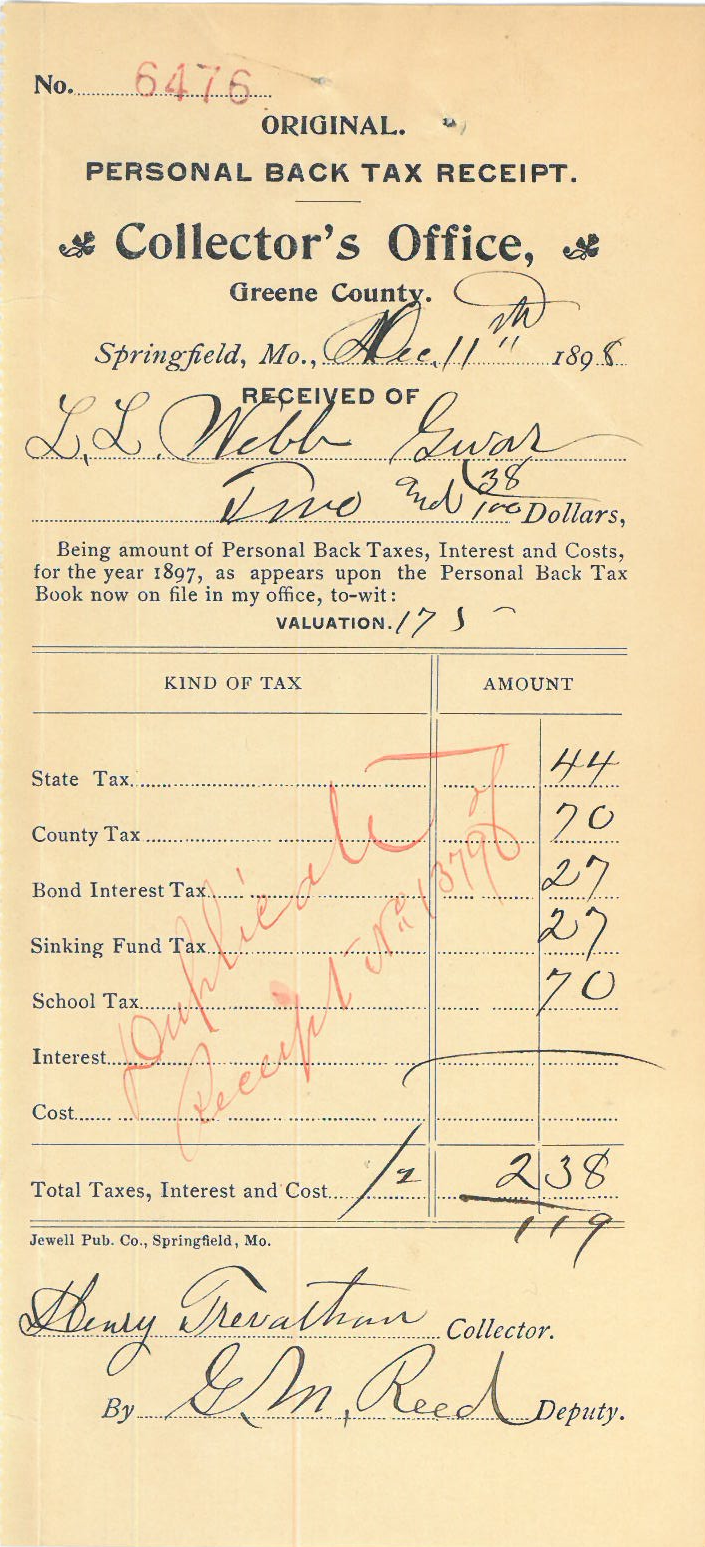 No. 6476
ORIGINAL.
PERSONAL BACK TAX RECEIPT.
Collector's Office,
Greene County.
Springfield, Mo., Dec. 11th 1898
RECEIVED OF
L. L. Webb
Two and 38/100 Dollars,
Being amount of Personal Back Taxes, Interest and Costs,
for the year 1897, as appears upon the Personal Back Tax
Book now on file in my office, to-wit:
VALUATION. 175
KIND OF TAX AMOUNT
State Tax 44
County Tax 70
Bond Interest Tax 27
Sinking Fund Tax 27
School Tax 70
Interest
Cost
Duplicate of
Receipt No. 13798
Total Taxes, Interest and Cost 1/2 2 38
119
Jewell Pub. Co., Springfield, Mo.
Henry Trevathan Collector.
By G. M. Reed Deputy.